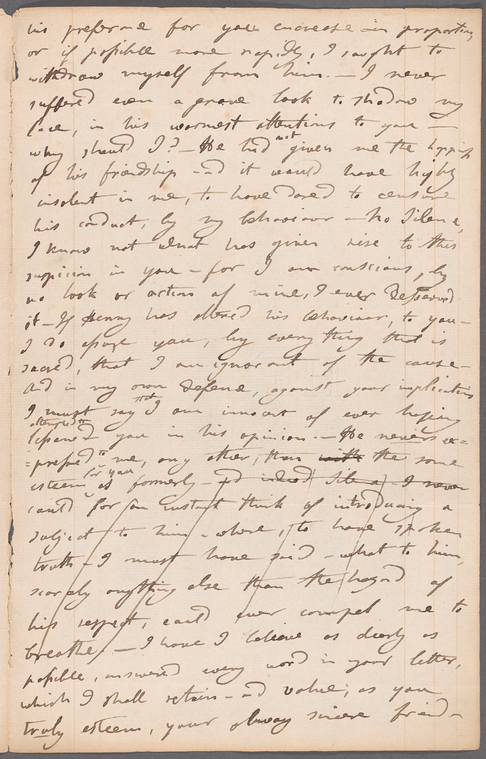 his preference for you encrease in proportion,
or if possible more rapidly, I sought to
withdraw myself from him. — I never
suffered even a grave look to shadow my
face, in his warmest attentions to you —
why should I? — He had not given me the
of his friendship — and it would have highly
insolent in me, to have dared to censure
his conduct, by my behaviour — No Silena,
I know not what has given rise to this
suspicion in you — for I am conscious, by
no look or action of mine, I ever deserved
it — If Henny has altered his behaviour, to you —
I do assure you, by every thing that is
sacred, that I am ignorant of the cause —
And in my own defence, against your implications
I must say that I am innocent of ever hoping
attempted to
lessened you in his opinion. — He never ex=
=pressed to me, any other, than with the same
esteem for you as formerly — and indeed Silena, I never
could for an instant think of introducing a
subject to him — where, to have spoken
truth — I must have said — what to him,
scarcely anything else than the hazard of
his respect, could ever compel me to
breathe, — I have I believe as clearly as
possible, answered every word in your letter,
which I shall retain — and value, as you
truly esteem, your always sincere friend —